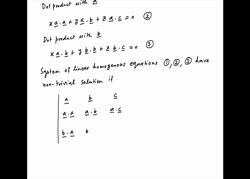 Dot product with a
x a.a + y a.b + z a.c = 0 ②
Dot product with b
x a.b + y b.b + z b.c = 0 ③
System of linear homogenous equations ①,②,③ have
non-trivial solution if
a b c
a.a a.b a.c
b.a b